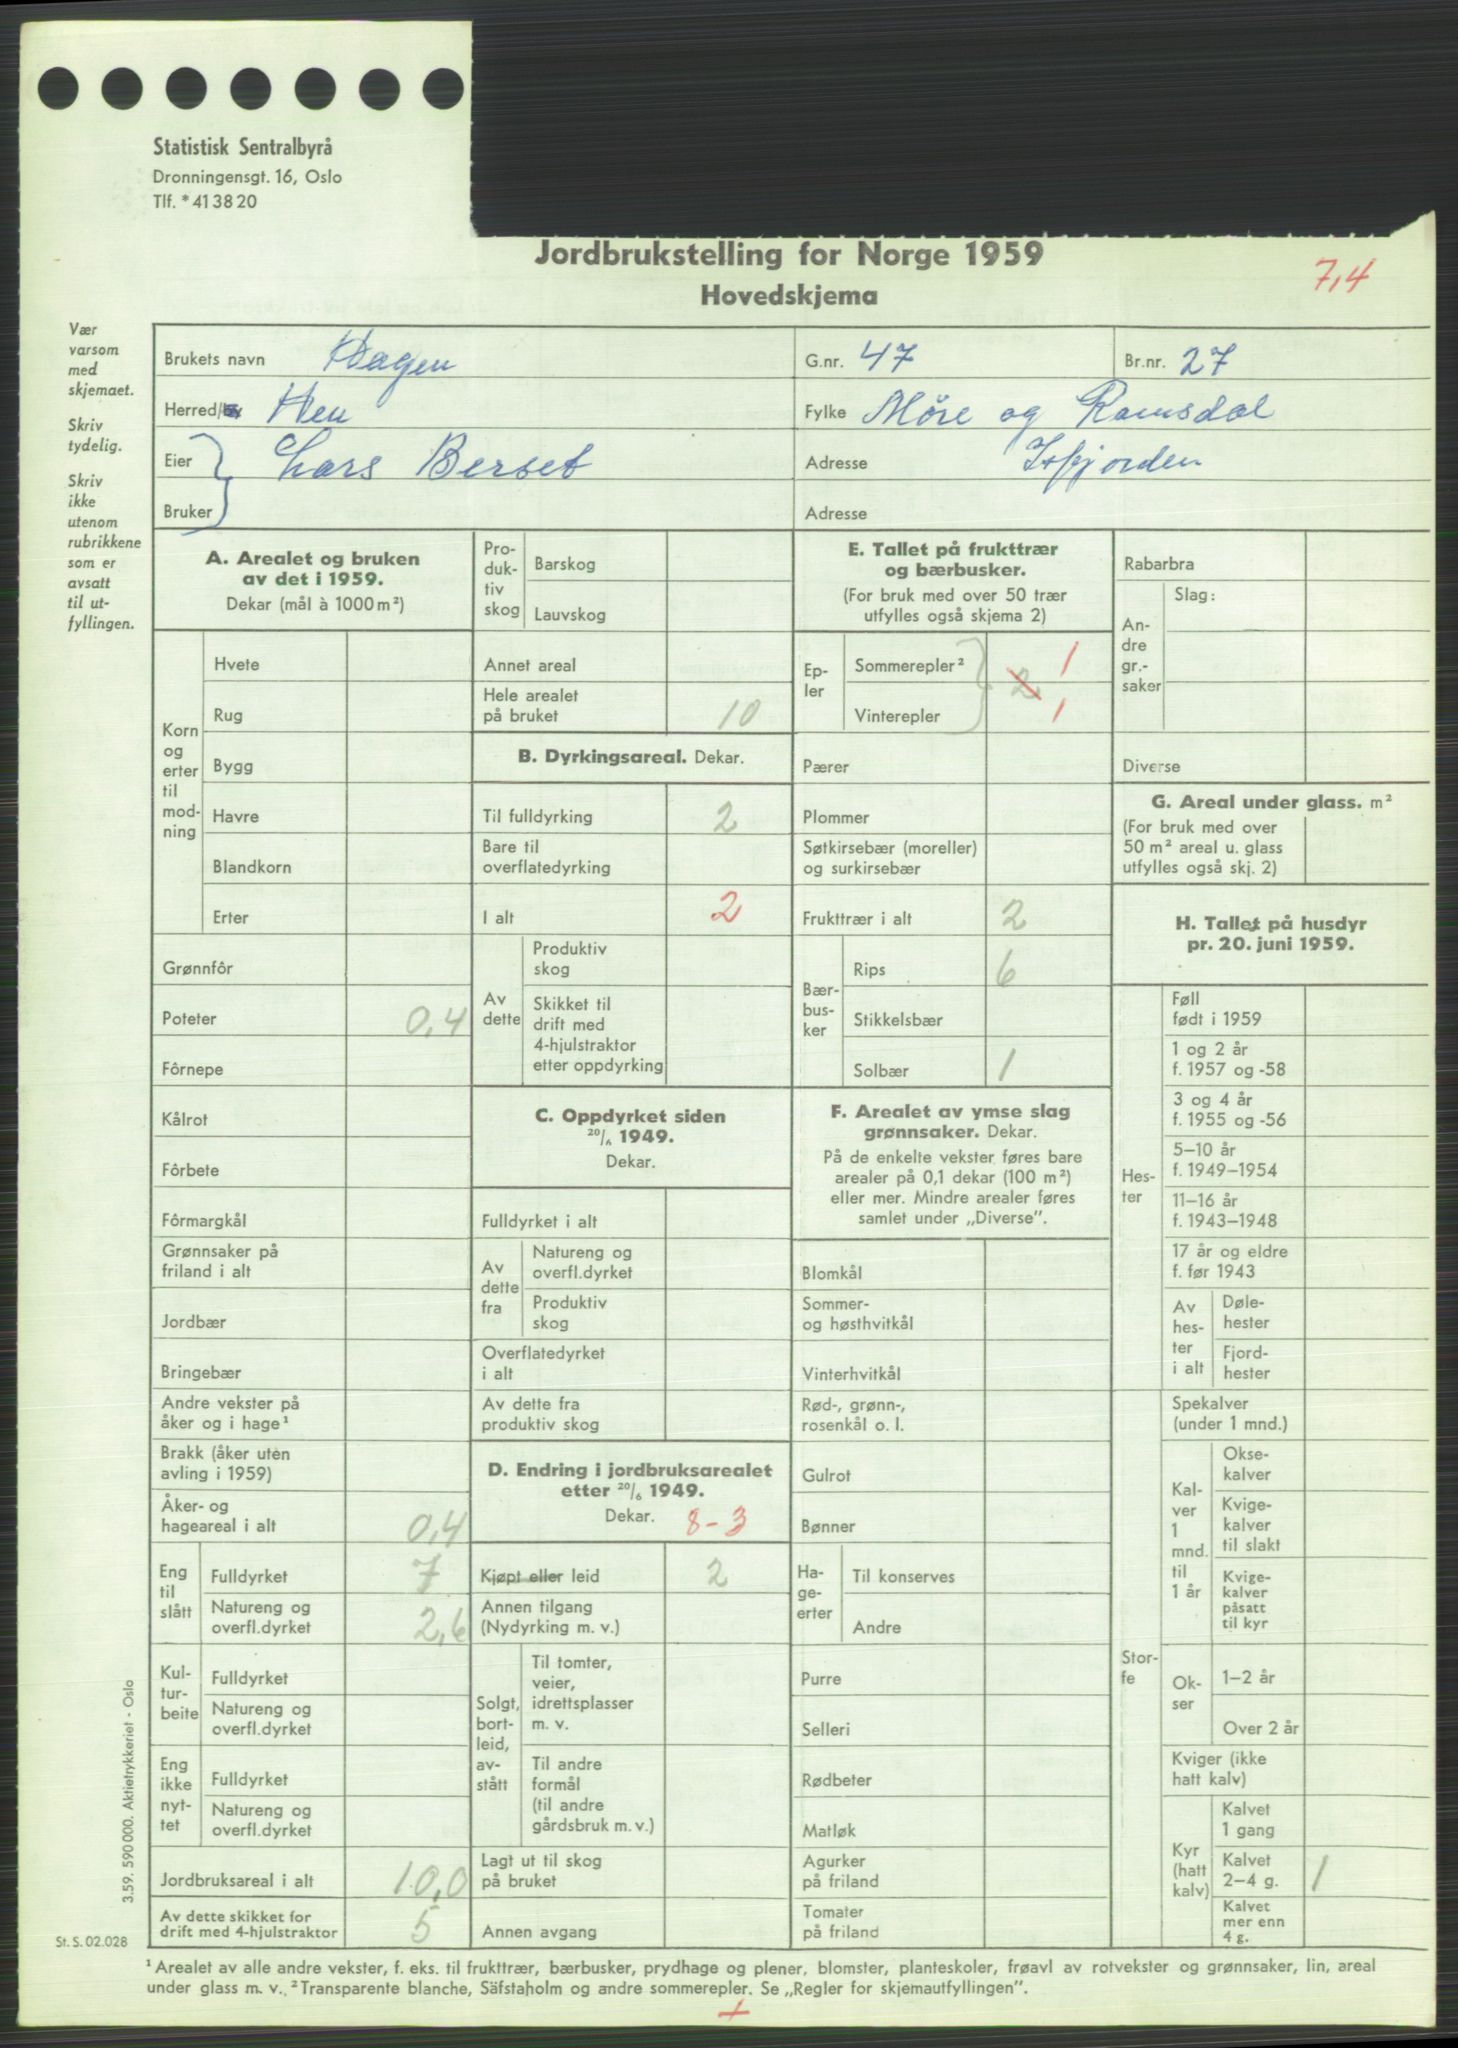 Statistisk Sentralbyrå
Dronningensgt. 16, Oslo
Tlf. * 41 38 20
Jordbrukstelling for Norge 1959
Hovedskjema
7,4
Vær
varsom
med
skjemaet.
Skriv
tydelig.
Skriv
ikke
utenom
rubrikkene
som er
avsatt
til ut-
fyllingen.
Brukets navn Hagen G.nr. 47 Br.nr. 27
Herred/by Hen Fylke Möre og Romsdal
Eier Lars Berset Adresse Isfjorden
Bruker Adresse
A. Arealet og bruken
av det i 1959.
Dekar (mål à 1000 m²)
Korn
og
erter
til
mod-
ning
Hvete
Rug
Bygg
Havre
Blandkorn
Erter
Grønnfôr
Poteter 0,4
Fôrnepe
Kålrot
Fôrbete
Fôrmargkål
Grønnsaker på
friland i alt
Jordbær
Bringebær
Andre vekster på
åker og i hage¹
Brakk (åker uten
avling i 1959)
Åker- og
hageareal i alt 0,4
Eng
til
slått
Fulldyrket 7
Natureng og
overfl.dyrket 2,6
Kul-
tur-
beite
Fulldyrket
Natureng og
overfl.dyrket
Eng
ikke
nyt-
tet
Fulldyrket
Natureng og
overfl.dyrket
Jordbruksareal i alt 10,0
Av dette skikket for
drift med 4-hjulstraktor 5
Pro-
duk-
tiv
skog
Barskog
Lauvskog
Annet areal
Hele arealet
på bruket 10
B. Dyrkingsareal. Dekar.
Til fulldyrking 2
Bare til
overflatedyrking
I alt 2
Av
dette
Produktiv
skog
Skikket til
drift med
4-hjulstraktor
etter oppdyrking
C. Oppdyrket siden
20/6 1949.
Dekar.
Fulldyrket i alt
Av
dette
fra
Natureng og
overfl.dyrket
Produktiv
skog
Overflatedyrket
i alt
Av dette fra
produktiv skog
D. Endring i jordbruksarealet
etter 20/6 1949.
Dekar. 8-3
Kjøpt eller leid 2
Annen tilgang
(Nydyrking m. v.)
Solgt,
bort-
leid,
av-
stått
Til tomter,
veier,
idrettsplasser
m. v.
Til andre
formål
(til andre
gårdsbruk m. v.)
Lagt ut til skog
på bruket
Annen avgang
E. Tallet på frukttrær
og bærbusker.
(For bruk med over 50 trær
utfylles også skjema 2)
Ep-
ler
Sommerepler² 1
2
Vinterepler 1
Pærer
Plommer
Søtkirsebær (moreller)
og surkirsebær
Frukttrær i alt 2
Bær-
bus-
ker
Rips 6
Stikkelsbær
Solbær 1
F. Arealet av ymse slag
grønnsaker. Dekar.
På de enkelte vekster føres bare
arealer på 0,1 dekar (100 m²)
eller mer. Mindre arealer føres
samlet under „Diverse”.
Blomkål
Sommer-
og høsthvitkål
Vinterhvitkål
Rød-, grønn-,
rosenkål o. l.
Gulrot
Bønner
Ha-
ge-
erter
Til konserves
Andre
Purre
Selleri
Rødbeter
Matløk
Agurker
på friland
Tomater
på friland
Rabarbra
An-
dre
gr.-
saker
Slag:
Diverse
G. Areal under glass. m²
(For bruk med over
50 m² areal u. glass
utfylles også skj. 2)
H. Tallet på husdyr
pr. 20. juni 1959.
Hes-
ter
Føll
født i 1959
1 og 2 år
f. 1957 og -58
3 og 4 år
f. 1955 og -56
5–10 år
f. 1949–1954
11–16 år
f. 1943–1948
17 år og eldre
f. før 1943
Av
hes-
ter
i alt
Døle-
hester
Fjord-
hester
Stor-
fe
Spekalver
(under 1 mnd.)
Kal-
ver
1
mnd.
til
1 år
Okse-
kalver
Kvige-
kalver
til slakt
Kvige-
kalver
påsatt
til kyr
Ok-
ser
1–2 år
Over 2 år
Kviger (ikke
hatt kalv)
Kyr
(hatt
kalv)
Kalvet
1 gang
Kalvet
2–4 g. 1
Kalvet
mer enn
4 g.
3.59. 590 000. Aktietrykkeriet - Oslo
St. S. 02.028
¹ Arealet av alle andre vekster, f. eks. til frukttrær, bærbusker, prydhage og plener, blomster, planteskoler, frøavl av rotvekster og grønnsaker, lin, areal
under glass m. v. ² Transparente blanche, Säfstaholm og andre sommerepler. Se „Regler for skjemautfyllingen”.
+